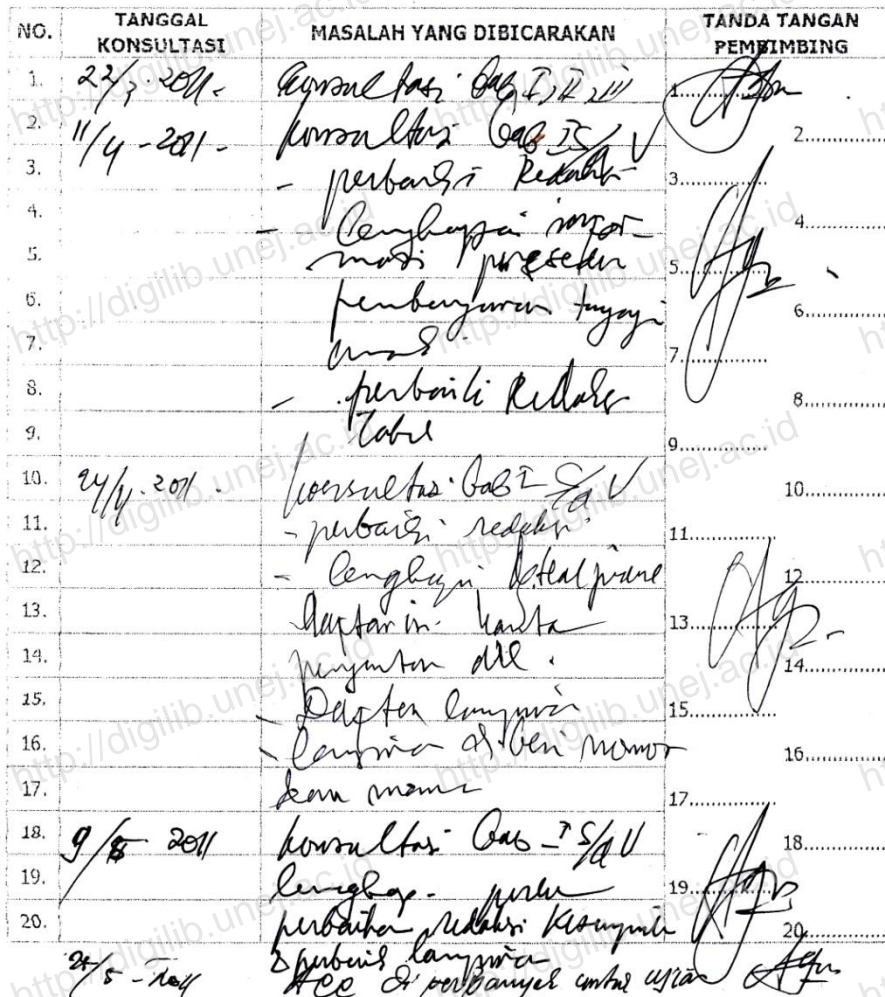 NO. TANGGAL KONSULTASI MASALAH YANG DIBICARAKAN TANDA TANGAN PEMBIMBING
1. 22/3 2011 - konsultasi bab I, II, III 1..........
2. 11/4 - 2011 - konsultasi bab I S/d V 2..........
3. - perbaiki Redaksi 3..........
4. - lengkapi infor- 4..........
5. masi prosedur 5..........
6. pembayaran 6..........
7. 7..........
8. - perbaiki Redaksi 8..........
9. Tabel 9..........
10. 2011 konsultasi bab I S/d V 10..........
11. - perbaiki redaksi 11..........
12. - lengkapi 12..........
13. daftar isi kata 13..........
14. pengantar dll. 14..........
15. - Daftar lampiran 15..........
16. - lampiran diberi nomor 16..........
17. dan nama 17..........
18. 9/5 2011 konsultasi bab I S/d V 18..........
19. lengkap - perlu 19..........
20. perbaikan redaksi kesimpulan 20..........
perbaiki lampiran
/5 - 2011 Acc diperbanyak untuk ujian
http://digilib.unej.ac.id